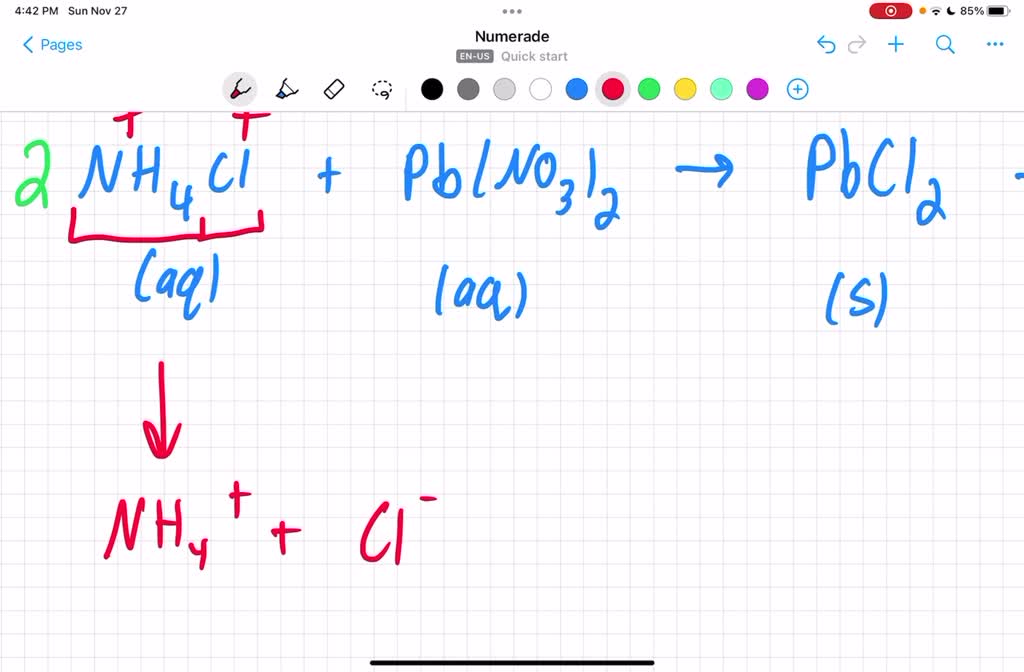 4:42 PM Sun Nov 27 85%
Pages
Numerade
EN-US Quick start
+ +
2 NH₄Cl + Pb(NO₃)₂ → PbCl₂
(aq) (aq) (s)
NH₄⁺ + Cl⁻